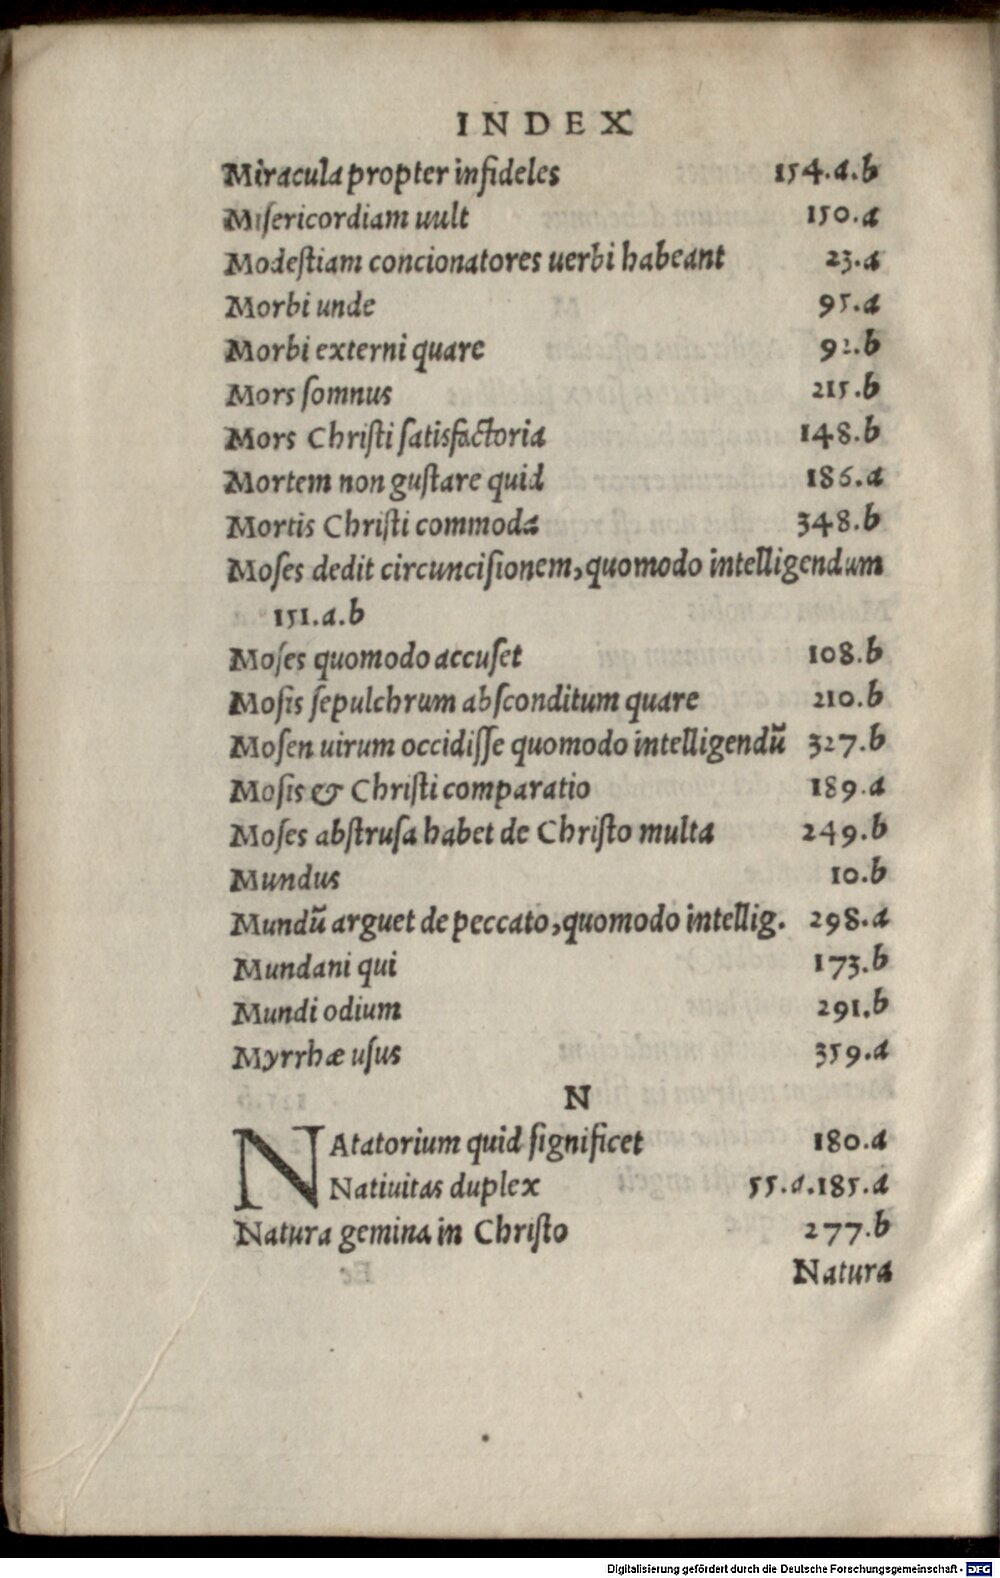 INDEX
Miracula propter infideles 154.a.b
Misericordiam uult 150.a
Modeſtiam concionatores uerbi habeant 23.a
Morbi unde 95.a
Morbi externi quare 92.b
Mors ſomnus 215.b
Mors Chriſti ſatisfactoria 148.b
Mortem non guſtare quid 186.a
Mortis Chriſti commoda 348.b
Moſes dedit circunciſionem, quomodo intelligendum
151.a.b
Moſes quomodo accuſet 108.b
Moſis ſepulchrum abſconditum quare 210.b
Moſen uirum occidiſſe quomodo intelligendũ 327.b
Moſis & Chriſti comparatio 189.a
Moſes abſtruſa habet de Chriſto multa 249.b
Mundus 10.b
Mundũ arguet de peccato, quomodo intellig. 298.a
Mundani qui 173.b
Mundi odium 291.b
Myrrhæ uſus 359.a
N
NAtatorium quid ſignificet 180.a
Natiuitas duplex 55.a.185.a
Natura gemina in Chriſto 277.b
Natura
Digitalisierung gefördert durch die Deutsche Forschungsgemeinschaft - DFG